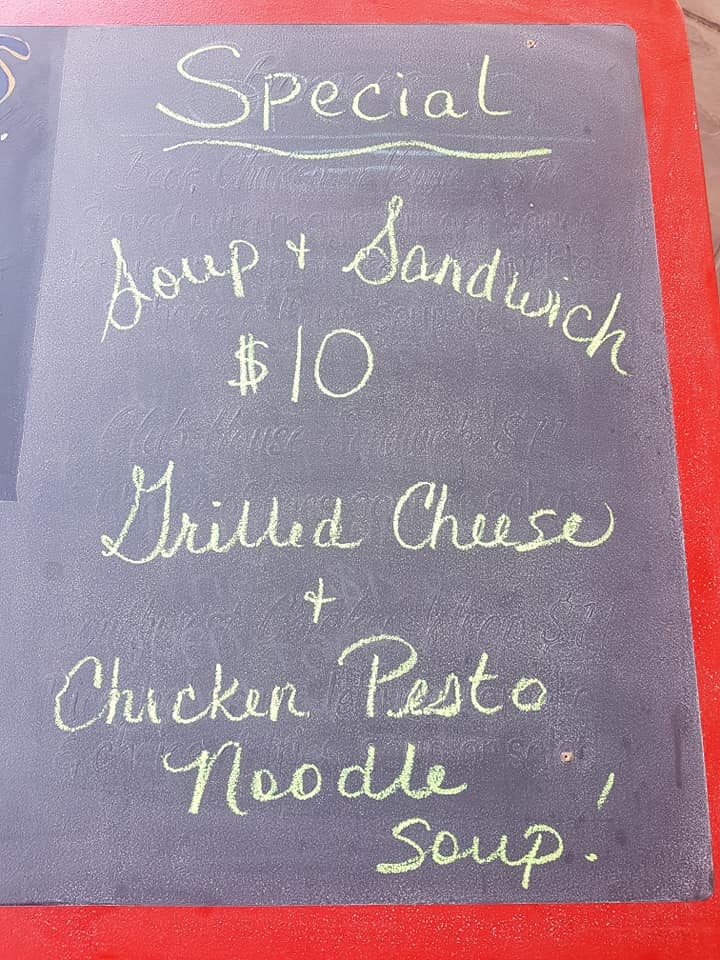 Special
Soup + Sandwich
$10
Grilled Cheese
+
Chicken Pesto
Noodle
Soup!